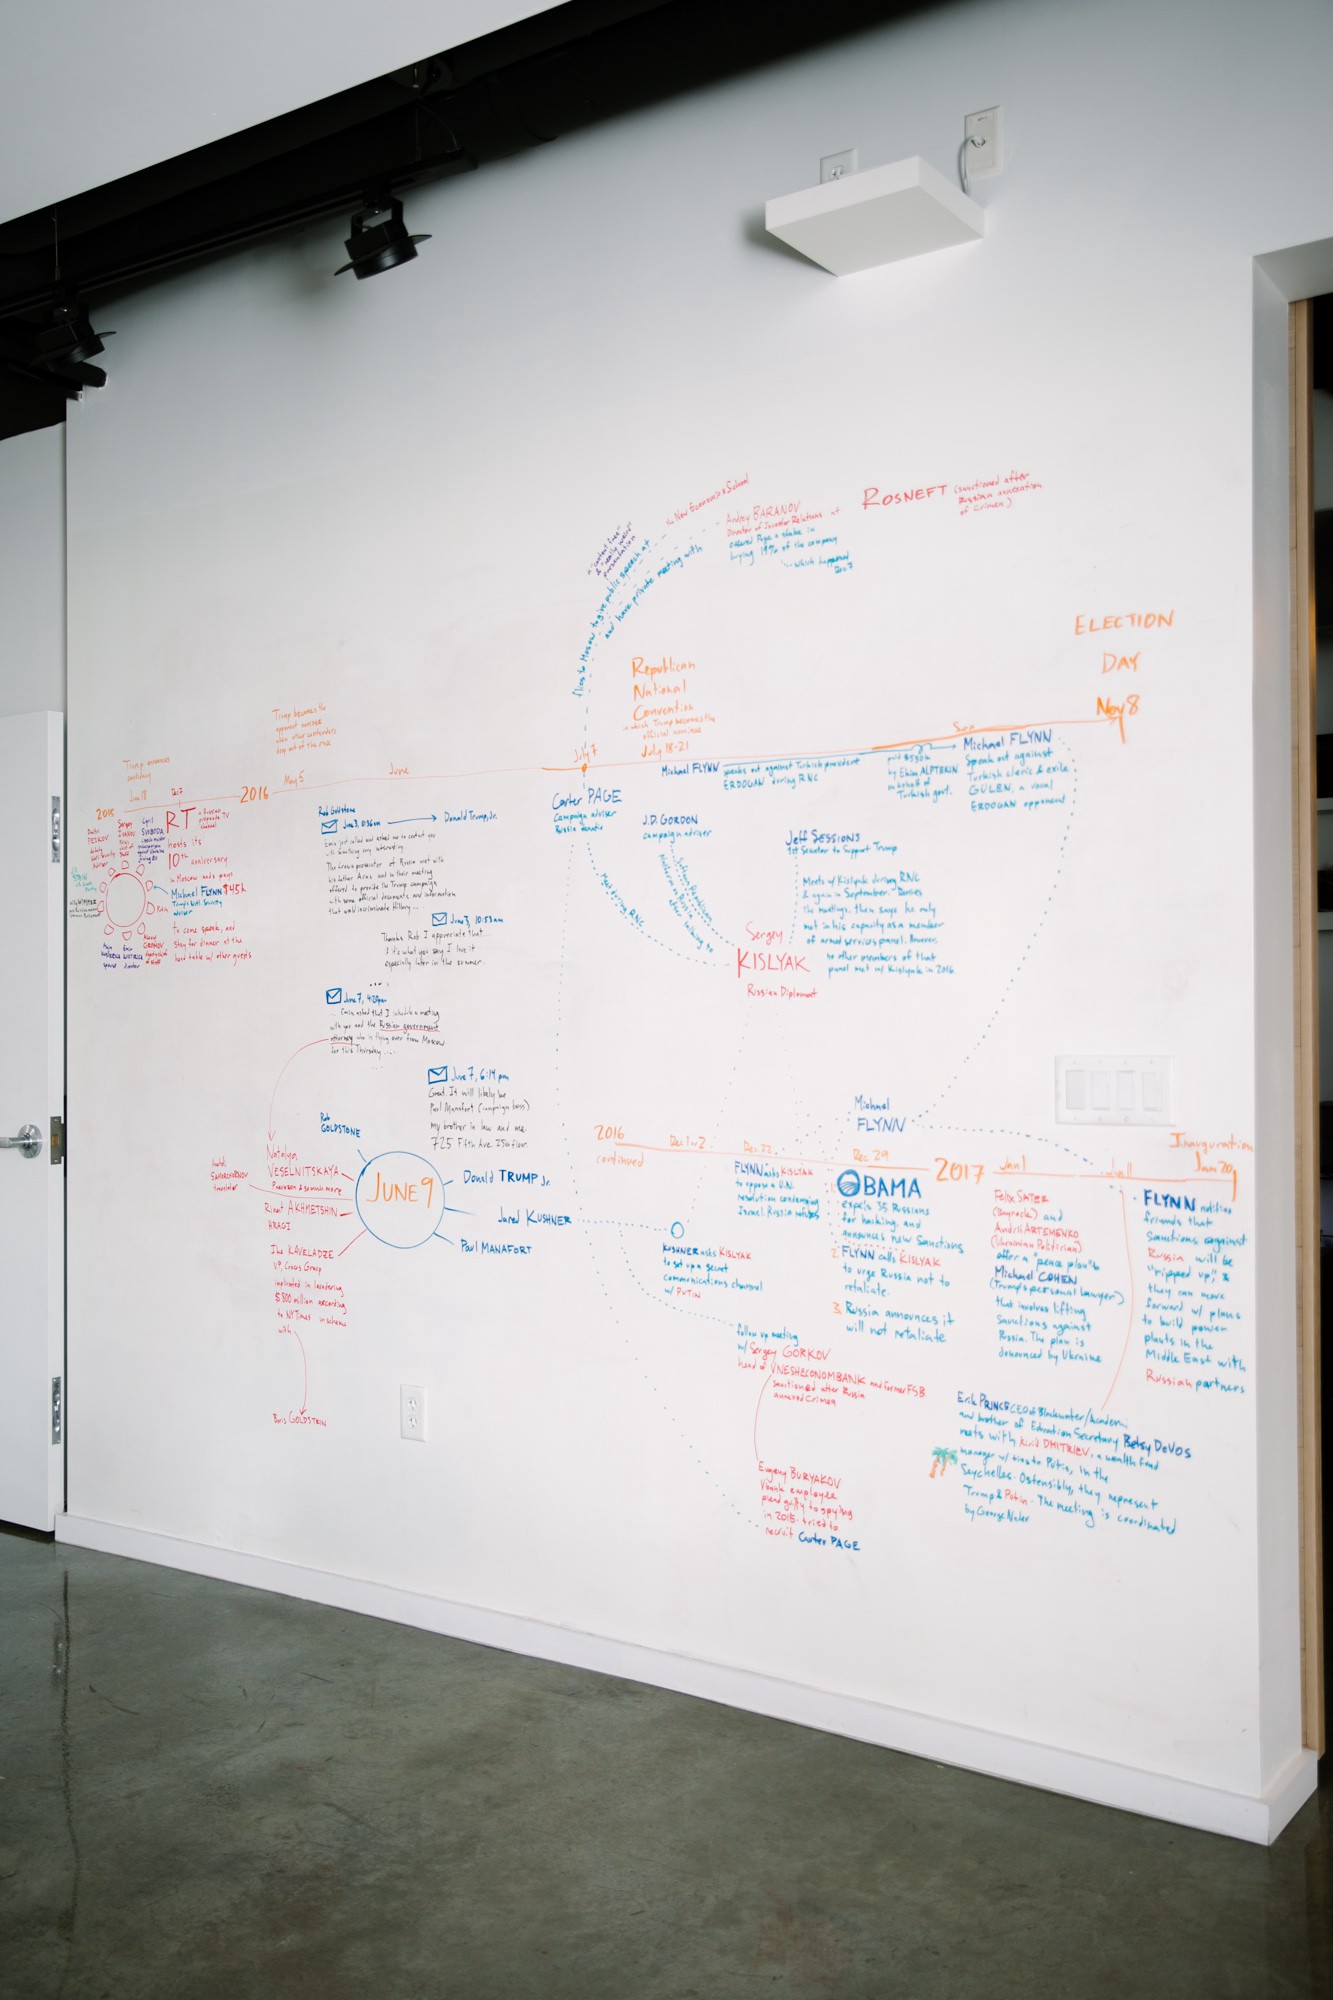 the New Economics School
a "content free"
& "really weird"
presentation
flies to Moscow to give public speech at
and have private meeting with
Andrey BARANOV
Director of Investor Relations at
offered Page a stake in
buying 19% of the company
which happened
Dec 7
ROSNEFT (sanctioned after
Russian annexation
of Crimea)
ELECTION
DAY
Nov 8
Republican
National
Convention
in which Trump becomes the
official nominee
July 18-21
Trump becomes the
apparent nominee
when other contenders
drop out of the race
Trump announces
candidacy
2015
Dec 7
2016
May 5
June
July 7
RT
a Russian
propaganda TV
channel
hosts its
10th anniversary
in Moscow and pays
Michael FLYNN $45k
Trump's Natl. Security
adviser
to come speak, and
stay for dinner at the
head table w/ other guests
Dmitri
PESKOV
Sergey
IVANOV
Cyril
SVOBODA
Putin
Alexey
GROMOV
Emir
KUSTURICA
director
Rob Goldstone
June 3, 10:36am
Donald Trump, Jr.
Emin just called and asked me to contact you
with something very interesting.
The Crown prosecutor of Russia met with
his father Aras and in their meeting
offered to provide the Trump campaign
with some official documents and information
that would incriminate Hillary...
June 3, 10:53am
Thanks Rob I appreciate that...
if it's what you say I love it
especially later in the summer.
...
June 7, 4:20pm
... Emin asked that I schedule a meeting
with you and the Russian government
attorney who is flying over from Moscow
for this Thursday....
June 7, 6:14pm
Great. It will likely be
Paul Manafort (campaign boss)
my brother in law and me.
725 Fifth Ave 25th floor.
Rob
GOLDSTONE
Natalya
VESELNITSKAYA
translator
Rinat AKHMETSHIN
HRAGI
Ike KAVELADZE
VP, Crocus Group
implicated in laundering
$800 million according
to NY Times in scheme
with
Boris GOLDSTEIN
JUNE 9
Donald TRUMP Jr.
Jared KUSHNER
Paul MANAFORT
Carter PAGE
Campaign adviser
Russia fanatic
Michael FLYNN
speaks out against Turkish president
ERDOGAN during RNC
paid $530k
by Ekim ALPTEKIN
on behalf of
Turkish govt.
Michael FLYNN
Speaks out against
Turkish cleric & exile
GULEN, a vocal
ERDOGAN opponent
J.D. GORDON
campaign adviser
Jeff SESSIONS
1st Senator to Support Trump
Meets w/ Kislyak during RNC
& again in September. Denies
the meetings, then says he only
met in his capacity as a member
of armed services panel. However,
no other members of that
panel met w/ Kislyak in 2016
Met during RNC
after talking to
Sergey
KISLYAK
Russian Diplomat
Michael
FLYNN
2016
continued
Dec 1 or 2
Dec 22
Dec 29
2017
Jan 1
Jan 11
Inauguration
Jan 20
FLYNN asks KISLYAK
to oppose a U.N.
resolution condemning
Israel. Russia refuses
KUSHNER asks KISLYAK
to set up a secret
communications channel
w/ PUTIN
follow up meeting
w/ Sergey GORKOV
head of VNESHECONOMBANK and former FSB
sanctioned after Russia
annexed Crimea
Evgeny BURYAKOV
Vbank employee
plead guilty to spying
in 2015. tried to
recruit Carter PAGE
OBAMA
expels 35 Russians
for hacking, and
announces new Sanctions
2. FLYNN calls KISLYAK
to urge Russia not to
retaliate.
3. Russia announces it
will not retaliate
Felix SATER
(Bayrock) and
Andrii ARTEMENKO
(Ukrainian Politician)
offer a "peace plan" to
Michael COHEN
(Trump's personal lawyer)
that involves lifting
sanctions against
Russia. The plan is
denounced by Ukraine
FLYNN notifies
friends that
sanctions against
Russia will be
"ripped up," &
they can move
forward w/ plans
to build power
plants in the
Middle East with
Russian partners
Erik PRINCE CEO of Blackwater/Academi
and brother of Education Secretary Betsy DeVOS
meets with Kirill DMITRIEV, a wealth fund
manager w/ ties to Putin, in the
Seychelles. Ostensibly, they represent
Trump & Putin. The meeting is coordinated
by George Nader